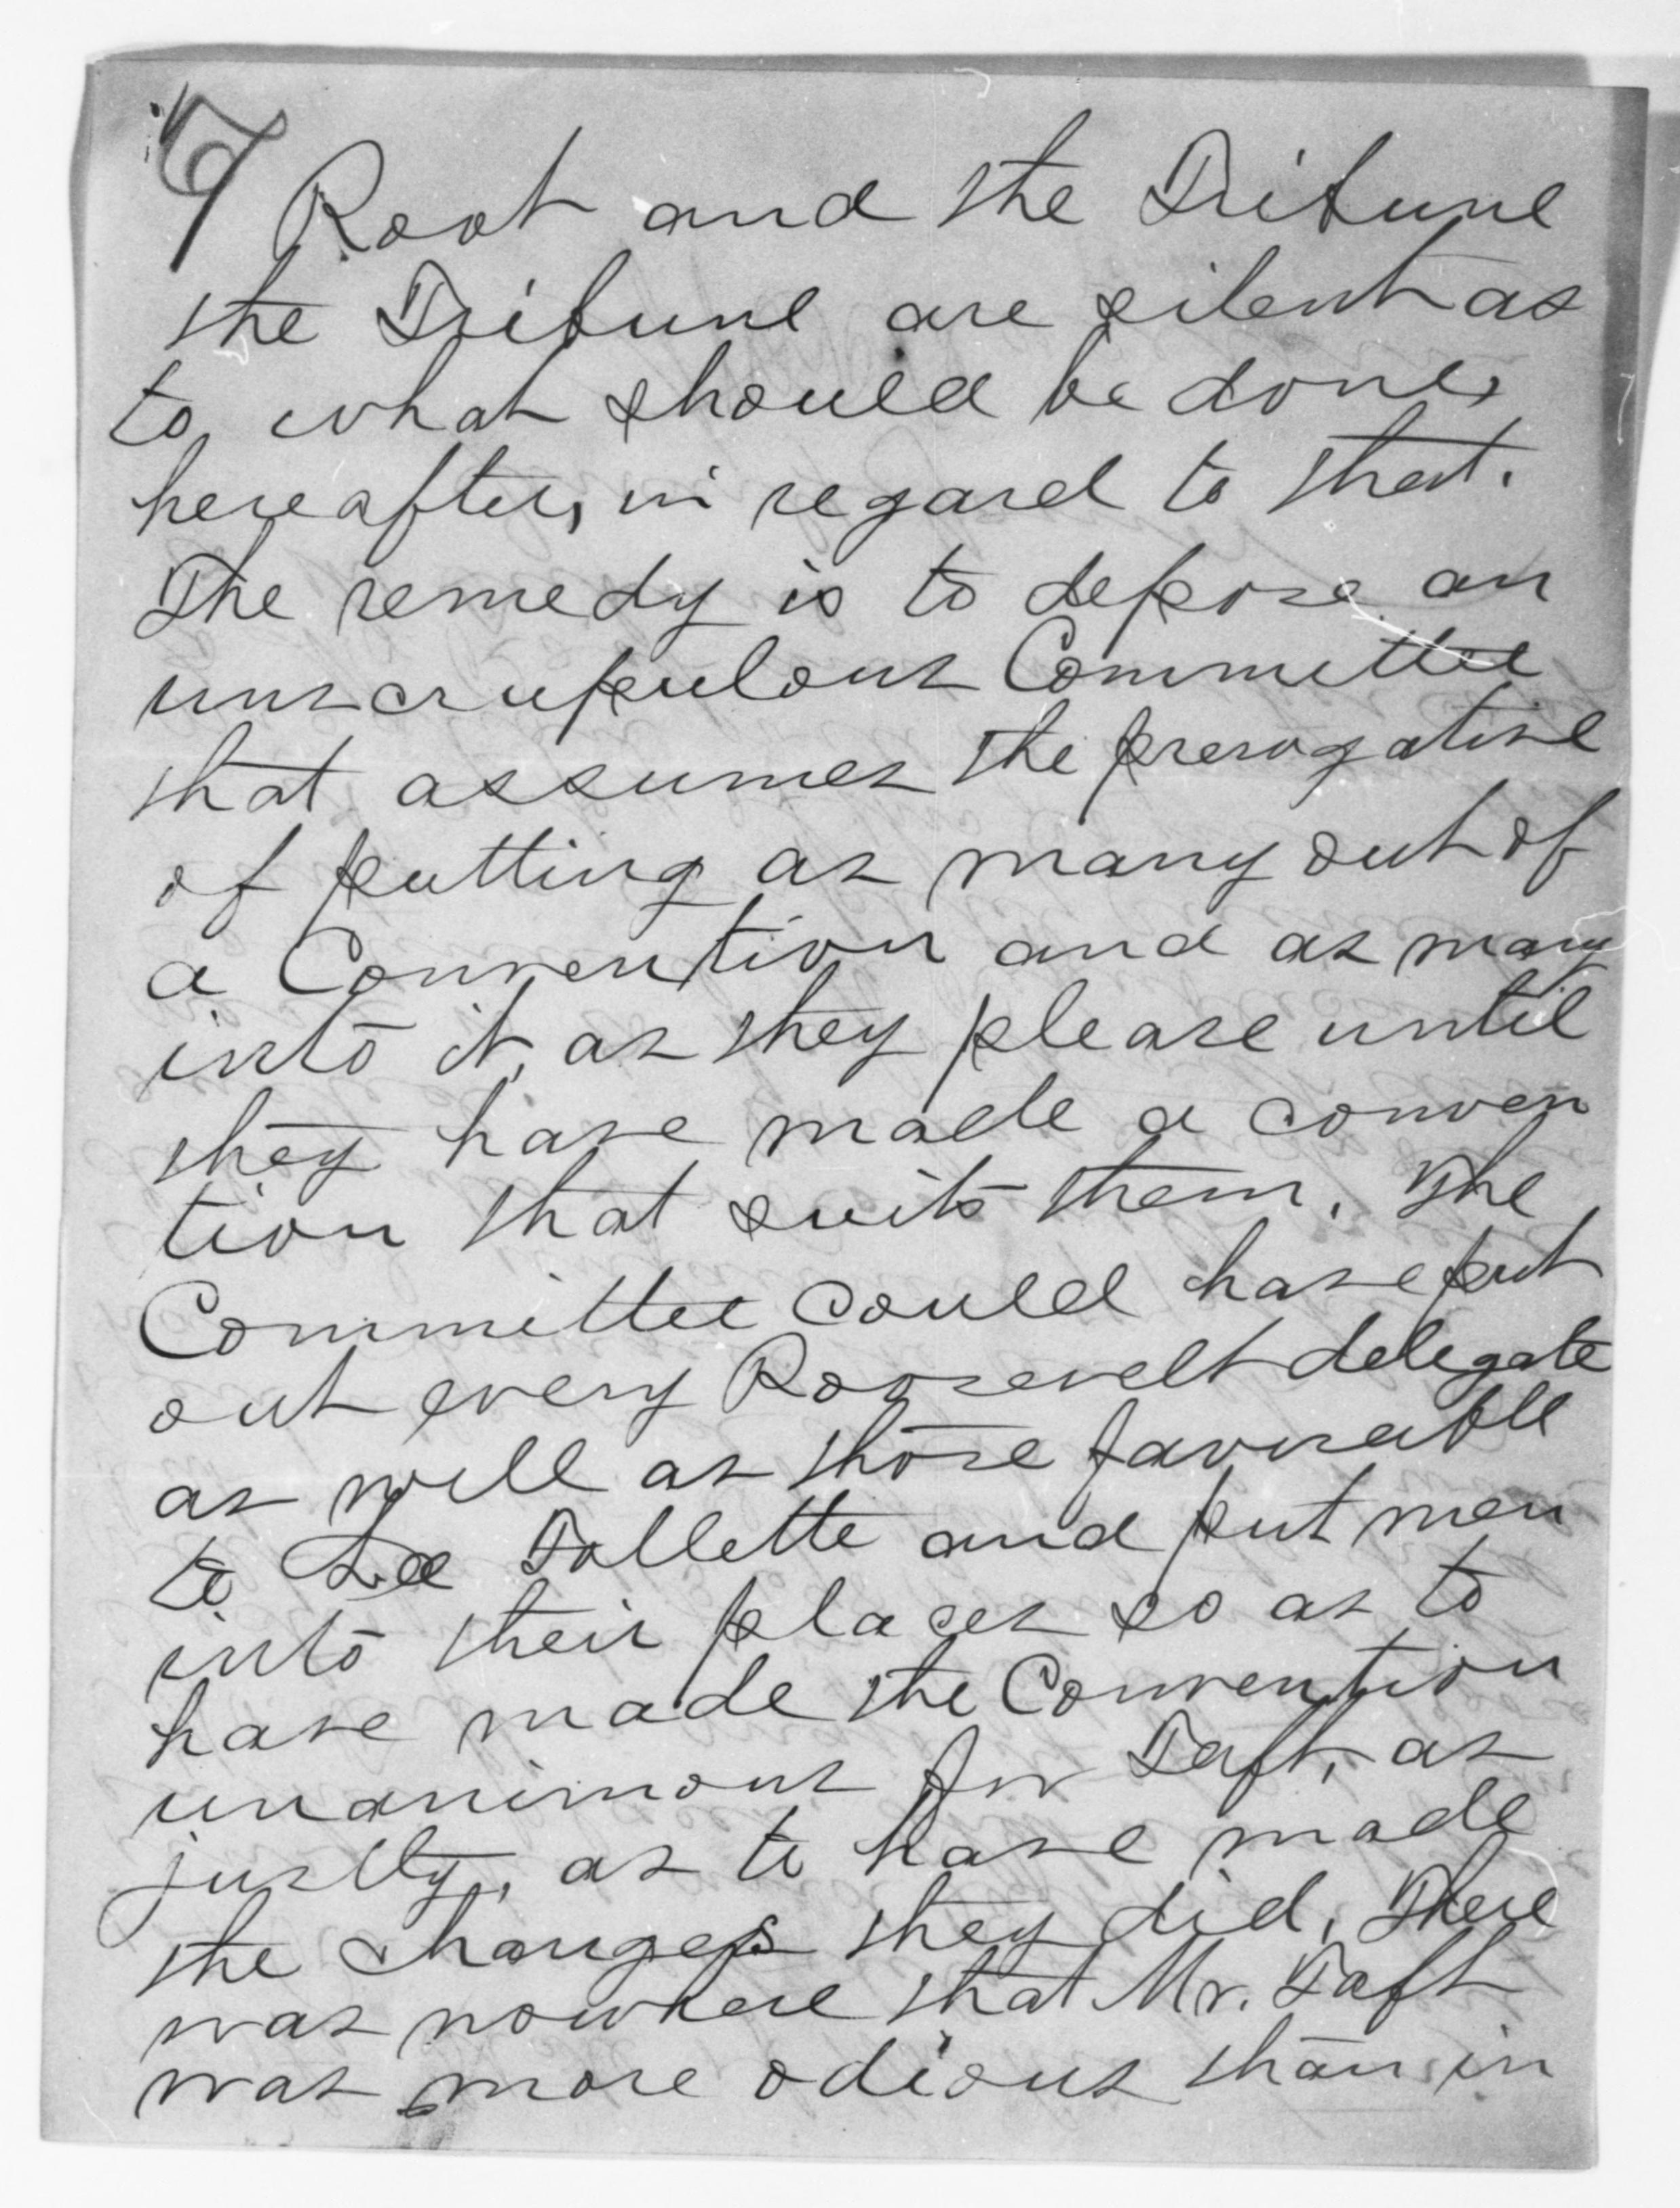 Root and the Tribune
the Tribune are silent as
to what should be done,
hereafter, in regard to that.
The remedy is to depose an
unscrupulous Committee
that assumes the prerogative
of putting as many out of
a Convention and as many
into it, as they please until
they have made a conven
tion that suits them. The
Committee could have put
out every Roosevelt delegate
as well as those favorable
to La Follette and put men
into their places so as to
have made the Convention
unanimous for Taft, as
justly, as to have made
the changes they did. There
was nowhere that Mr. Taft
was more odious than in